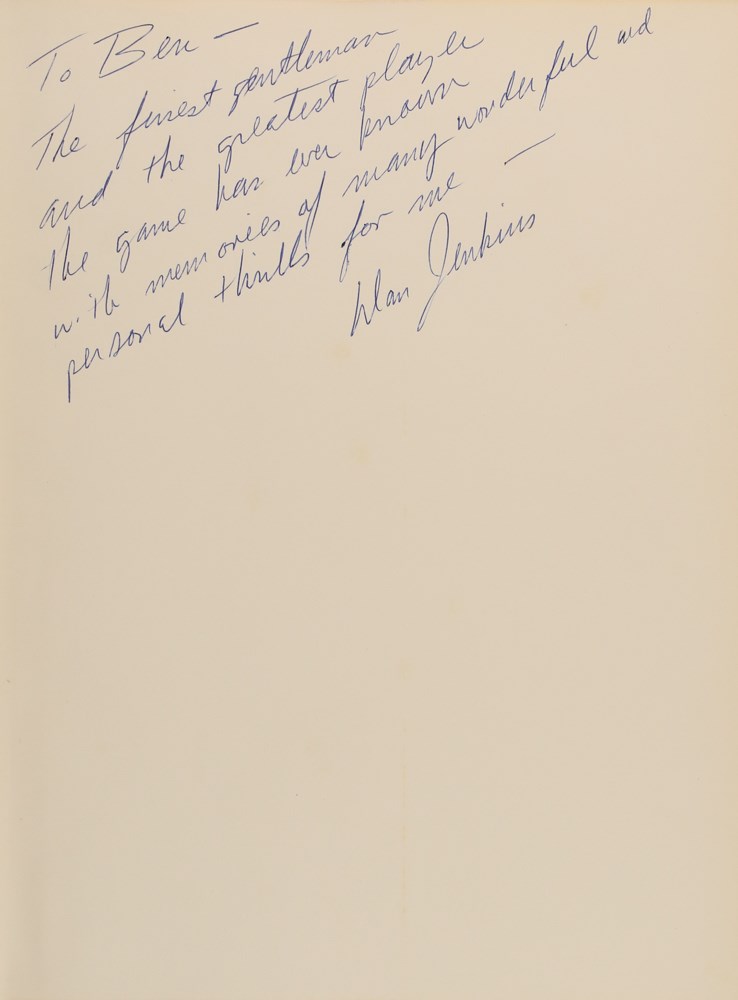 To Ben —
The finest gentleman
and the greatest player
the game has ever known
with memories of many wonderful and
personal thrills for me —
Dan Jenkins